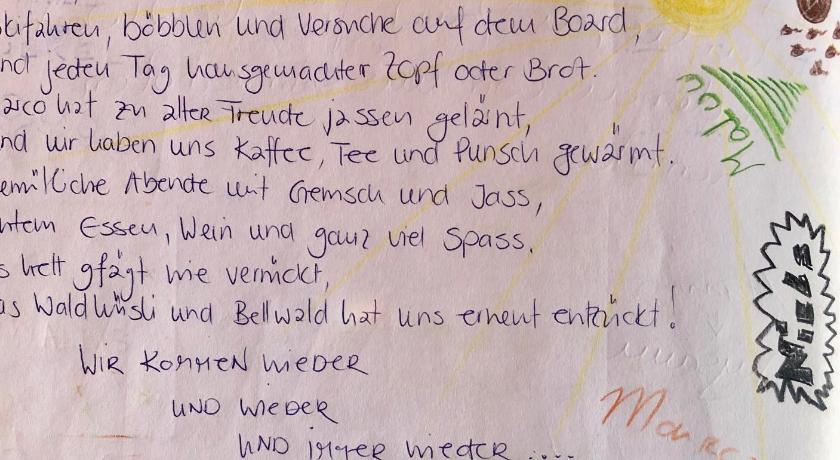 Skifahren, böbblen und Versuche auf dem Board,
und jeden Tag hausgemachter Zopf oder Brot.
Marco hat zu aller Freude jassen gelärnt,
und wir haben uns Kaffee, Tee und Punsch gewärmt.
Gemütliche Abende mit Gemsch und Jass,
Essen, Wein und ganz viel Spass.
s hett gfägt wie verrückt,
Das Waldhüsli und Bellwald hat uns erneut entzückt!
WIR KOMMEN WIEDER
UND WIEDER
UND IMMER WIEDER ....
Malou
Niels